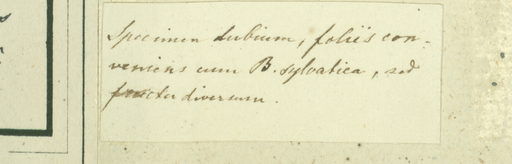 Specimen dubium, foliis con-
veniens cum B. sylvatica, sed
fructu diversum.